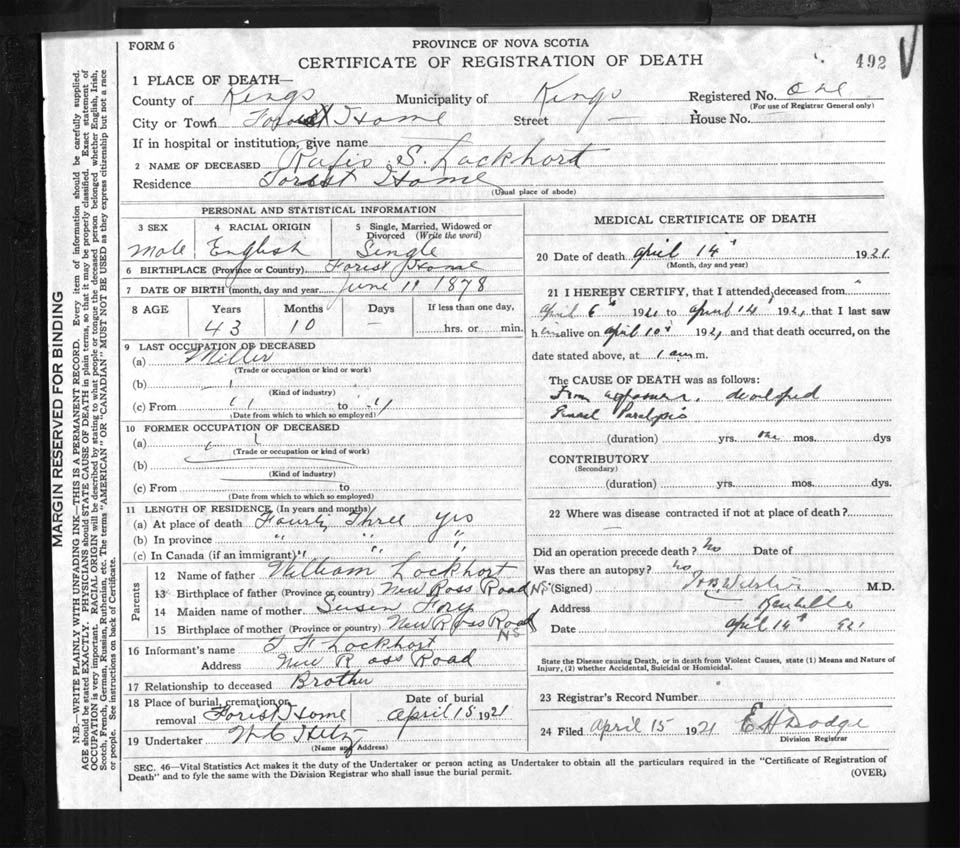 FORM 6
PROVINCE OF NOVA SCOTIA
CERTIFICATE OF REGISTRATION OF DEATH
492
1 PLACE OF DEATH—
County of Kings Municipality of Kings Registered No. one
(For use of Registrar General only)
City or Town Forest Home Street — House No.
If in hospital or institution, give name
2 NAME OF DECEASED Rufis S. Lockhort
Residence Forest Home
(Usual place of abode)
PERSONAL AND STATISTICAL INFORMATION
3 SEX 4 RACIAL ORIGIN 5 Single, Married, Widowed or Divorced (Write the word)
Male English Single
6 BIRTHPLACE (Province or Country) Forest Home
7 DATE OF BIRTH (month, day and year) June 11 1878
8 AGE Years Months Days If less than one day,
43 10 — hrs. or min.
9 LAST OCCUPATION OF DECEASED
(a) Miller
(Trade or occupation or kind or work)
(b)
(Kind of industry)
(c) From to
(Date from which to which so employed)
10 FORMER OCCUPATION OF DECEASED
(a)
(Trade or occupation or kind of work)
(b)
(Kind of industry)
(c) From to
(Date from which to which so employed)
11 LENGTH OF RESIDENCE (In years and months)
(a) At place of death Fourty Three yrs
(b) In province " " "
(c) In Canada (if an immigrant) " " "
Parents
12 Name of father William Lockhort
13 Birthplace of father (Province or country) New Ross Road NS
14 Maiden name of mother Susen
15 Birthplace of mother (Province or country) New Ross Road NS
16 Informant's name Lockhort
Address New Ross Road
17 Relationship to deceased Brother
18 Place of burial, cremation or removal Forest Home
Date of burial April 15 1921
19 Undertaker
(Name and Address)
MEDICAL CERTIFICATE OF DEATH
20 Date of death April 14 1921
(Month, day and year)
21 I HEREBY CERTIFY, that I attended deceased from
April 6 1921 to April 14 1921, that I last saw
him alive on April 10 1921 and that death occurred, on the
date stated above, at 1 am m.
The CAUSE OF DEATH was as follows:
From exposure, developed
Paralysis
(duration) yrs. one mos. dys
CONTRIBUTORY
(Secondary)
(duration) yrs. mos. dys.
22 Where was disease contracted if not at place of death?
Did an operation precede death? No Date of
Was there an autopsy? no
(Signed) M.D.
Address Kentville
Date April 14 921
State the Disease causing Death, or in death from Violent Causes, state (1) Means and Nature of
Injury, (2) whether Accidental, Suicidal or Homicidal.
23 Registrar's Record Number
24 Filed April 15 1921 E H Dodge
Division Registrar
SEC. 46—Vital Statistics Act makes it the duty of the Undertaker or person acting as Undertaker to obtain all the particulars required in the "Certificate of Registration of
Death" and to fyle the same with the Division Registrar who shall issue the burial permit.
(OVER)
MARGIN RESERVED FOR BINDING
N.B.—WRITE PLAINLY WITH UNFADING INK—THIS IS A PERMANENT RECORD. Every item of information should be carefully supplied.
AGE should be stated EXACTLY. PHYSICIANS should STATE CAUSE OF DEATH in plain terms, so that it may be properly classified. Exact statement of
OCCUPATION is very important. RACIAL ORIGIN will be described by stating to what people or tongue the deceased person belonged whether English, Irish,
Scotch, French, German, Russian, Ruthenian, etc. The terms "AMERICAN" OR "CANADIAN" MUST NOT BE USED as they express citizenship but not a race
or people. See instructions on back of Certificate.